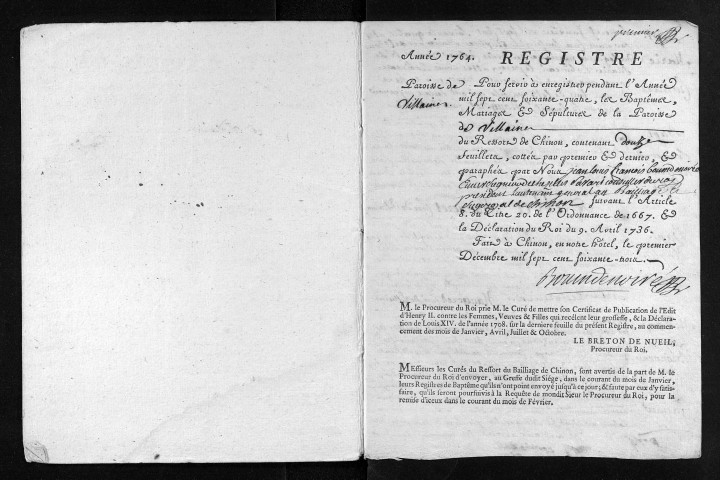 premier
Année 1764. REGISTRE
Paroisse de Villaines
Pour servir à enregistrer pendant l'Année
mil sept cent soixante-quatre, les Baptêmes,
Mariages & Sépultures de la Paroisse
de Villaines
du Ressort de Chinon, contenant douze
feuillets, cottés par premier & dernier, &
paraphés par Nous Jean Louis François Bouin de noiré
président lieutenant general au Bailliage &
de Chinon suivant l'Article
8. du Titre 20. de l'Ordonnance de 1667. &
la Déclaration du Roi du 9. Avril 1736.
Fait à Chinon, en notre hôtel, le premier
Décembre mil sept cent soixante-trois.
Bouindenoiré
M. le Procureur du Roi prie M. le Curé de mettre son Certificat de Publication de l'Edit
d'Henry II. contre les Femmes, Veuves & Filles qui recèlent leur grossesse, & la Déclara-
tion de Louis XIV. de l'année 1708. sur la derniere feuille du présent Registre, au commen-
cement des mois de Janvier, Avril, Juillet & Octobre.
LE BRETON DE NUEIL,
Procureur du Roi.
MEssieurs les Curés du Ressort du Bailliage de Chinon, sont avertis de la part de M. le
Procureur du Roi d'envoyer, au Greffe dudit Siége, dans le courant du mois de Janvier,
leurs Registres de Baptême qu'ils n'ont point envoyé jusqu'à ce jour; & faute par eux d'y satis-
faire, qu'ils seront poursuivis à la Requête de mondit Sieur le Procureur du Roi, pour la
remise d'iceux dans le courant du mois de Février.